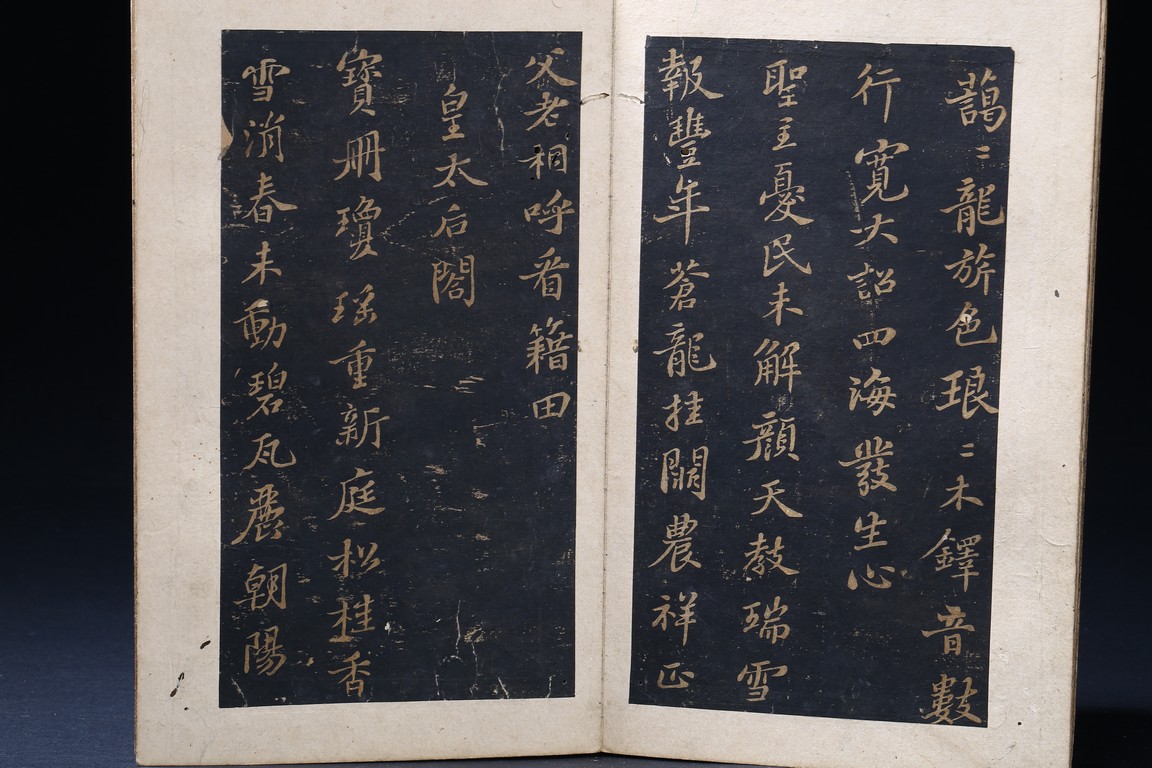 藹〻龍旂色琅〻木鐸音數
行寬大詔四海發生心
聖主憂民未解顏天教瑞雪
報豐年蒼龍挂闕農祥正
父老相呼看籍田
皇太后閤
寶冊瓊瑤重新庭松桂香
雪消春未動碧瓦麗朝陽